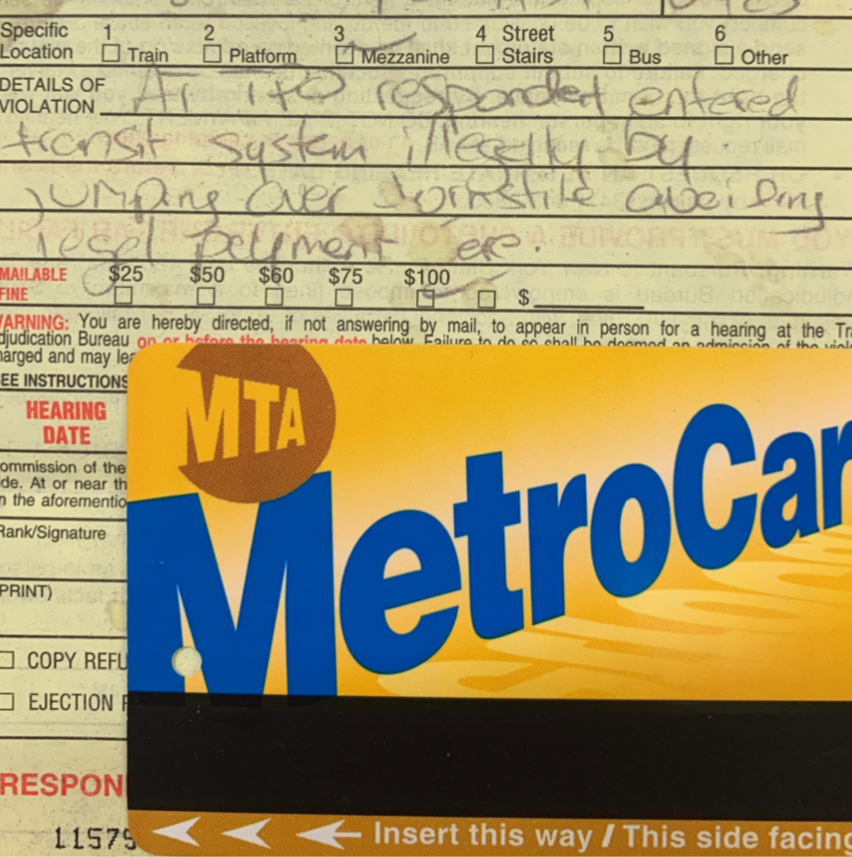 Specific Location 1 Train 2 Platform 3 Mezzanine 4 Street Stairs 5 Bus 6 Other
DETAILS OF VIOLATION At TPO respondent entered
transit system illegally by
jumping over turnstile avoiding
legal payment
MAILABLE FINE $25 $50 $60 $75 $100 $
WARNING: You are hereby directed, if not answering by mail, to appear in person for a hearing at the Tra
djudication Bureau on or before the hearing date below. Failure to do so shall be deemed an admission of the viol
harged and may lea
EE INSTRUCTIONS
HEARING
DATE
ommission of the
de. At or near th
n the aforementio
Rank/Signature
PRINT)
COPY REFU
EJECTION
RESPON
11579
MTA
MetroCar
Insert this way / This side facing